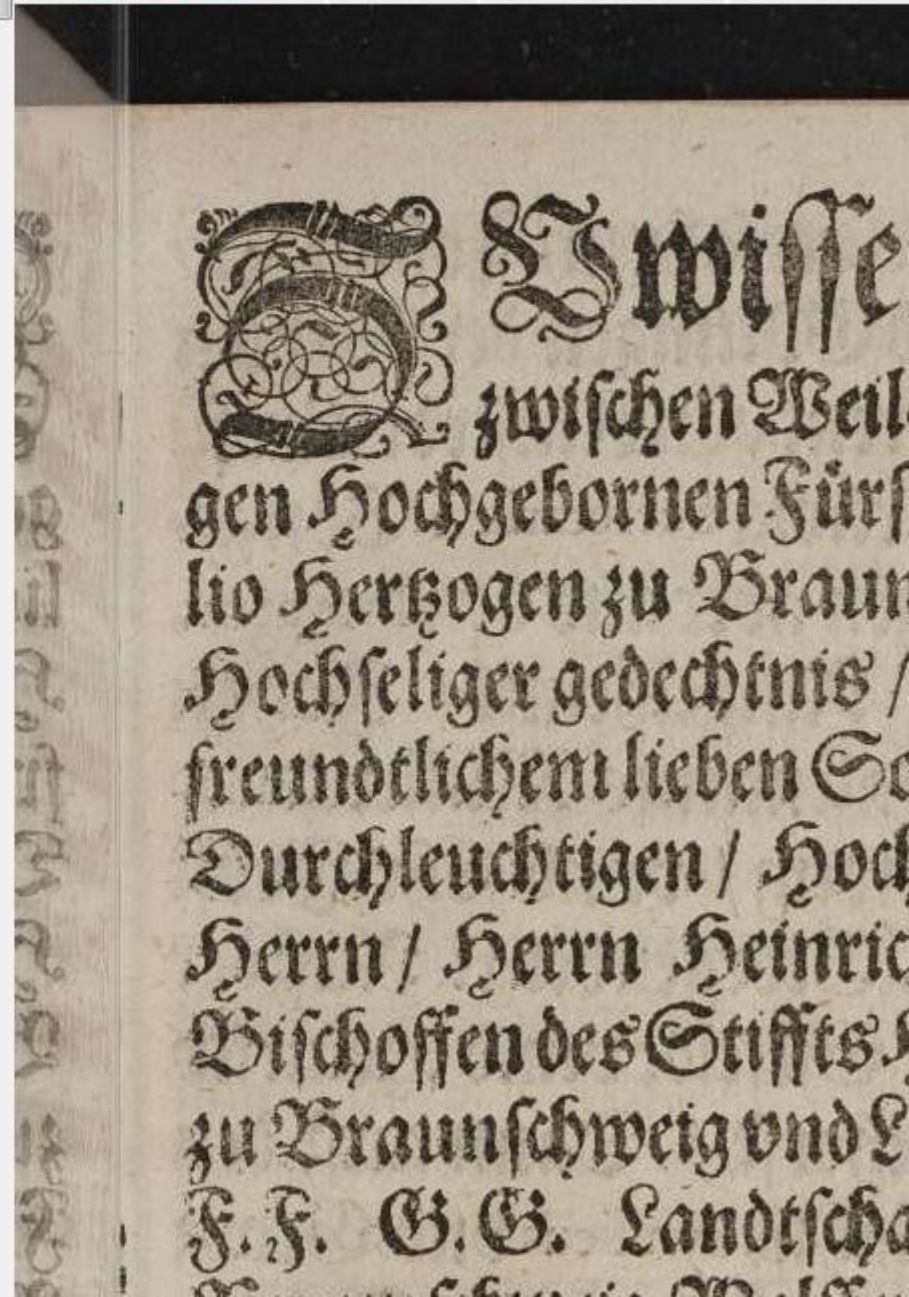 ZUwisse
zwischen Weil
gen Hochgebornen Fürs
lio Hertzogen zu Braun
Hochseliger gedechtnis /
freundtlichem lieben So
Durchleuchtigen / Hoch
Herrn / Herrn Heinric
Bischoffen des Stiffts H
zu Braunschweig vnd L
F. F. G. G. Landtscha